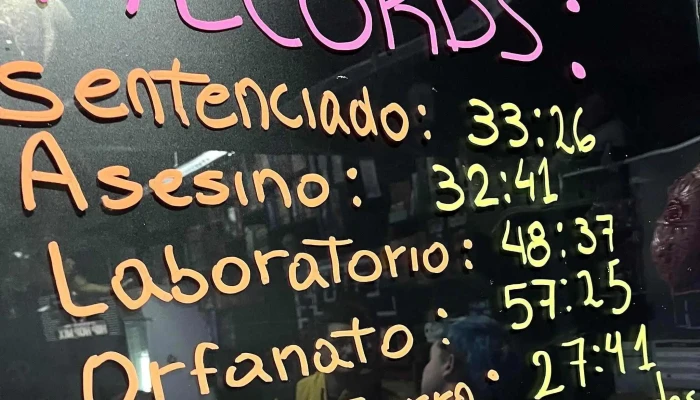 RECORDS:
Sentenciado: 33:26
Asesino: 32:41
Laboratorio: 48:37
Orfanato: 57:25
27:41